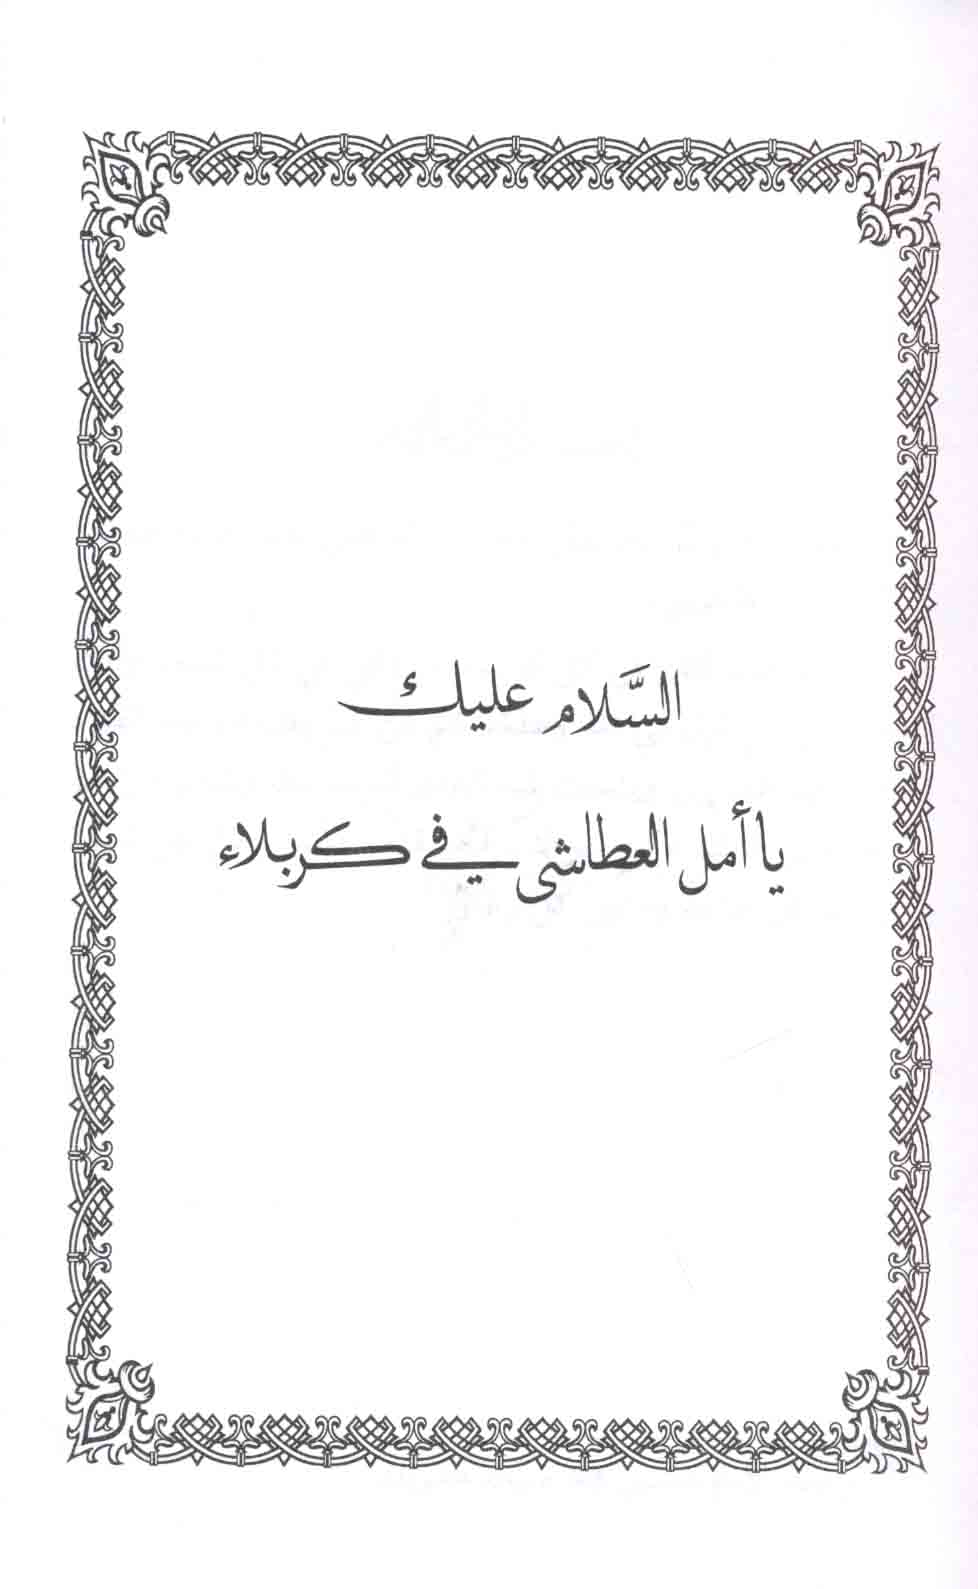 السَّلام عليك
يا أمل العطاشى في كربلاء